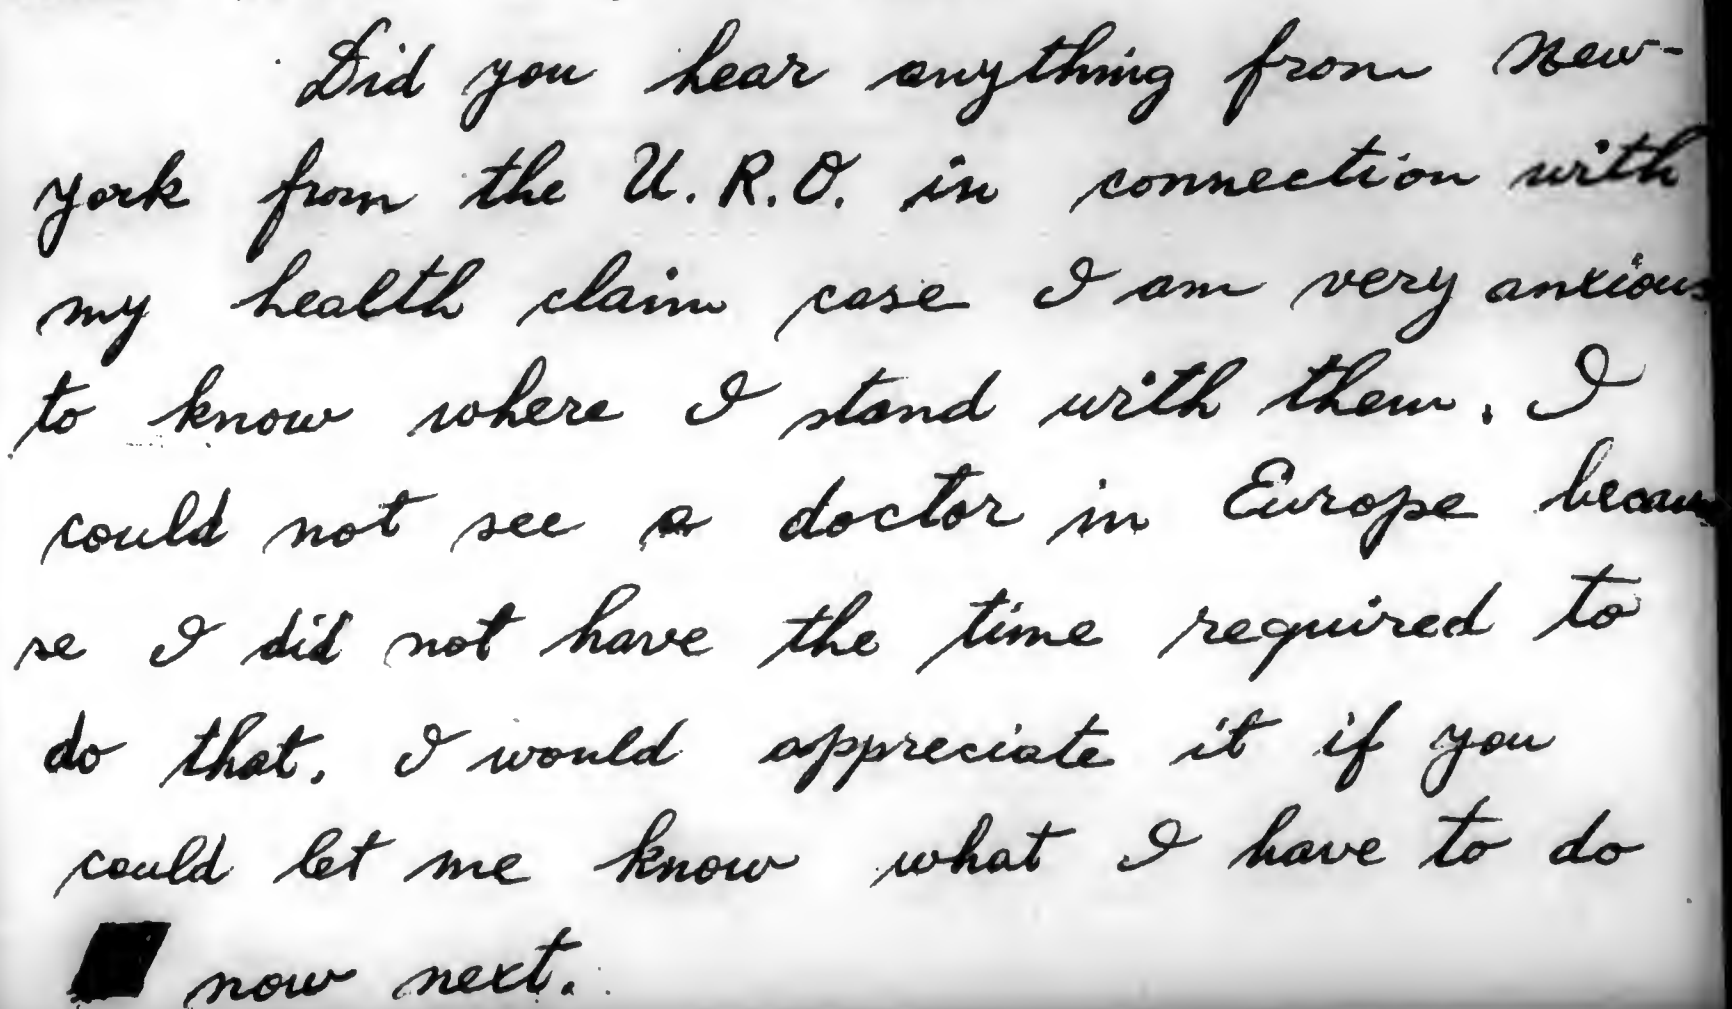 Did you hear anything from New-
york from the U.R.O. in connection with
my health claim case I am very anxious
to know where I stand with them. I
could not see a doctor in Europe becau
se I did not have the time required to
do that. I would appreciate it if you
could let me know what I have to do
now next.